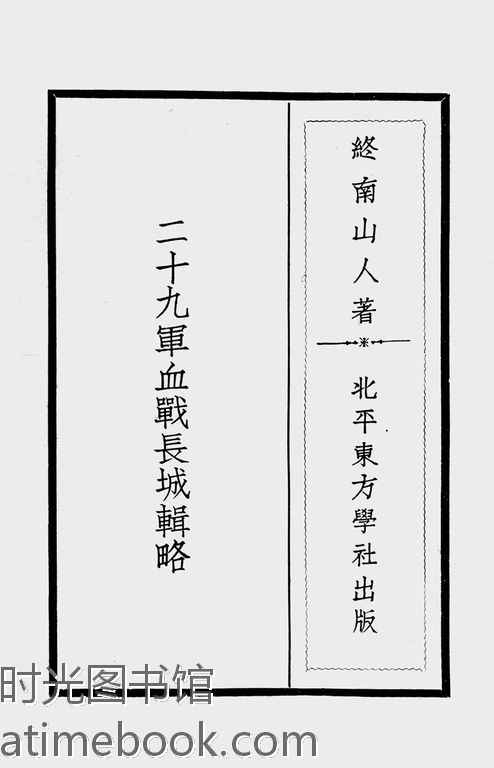 終南山人著
北平東方學社出版
二十九軍血戰長城輯略
时光图书馆
atimebook.com